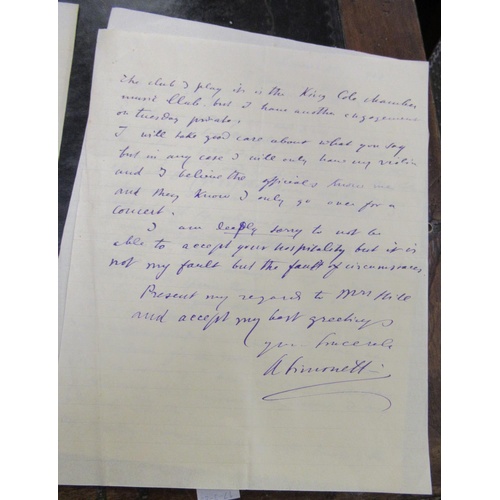 The club I play in is the King Cole chamber
music Club. but I have another engagement
on Tuesday private.
I will take good care about what you say
but in any case I will only have my violin
and I believe the officials know me
and they know I only go over for a
concert.
I am deeply sorry to not be
able to accept your hospitality but it is
not my fault but the fault of circumstances
Present my regards to Mrs
and accept my best greetings
yours Sincerely
A Simonetti